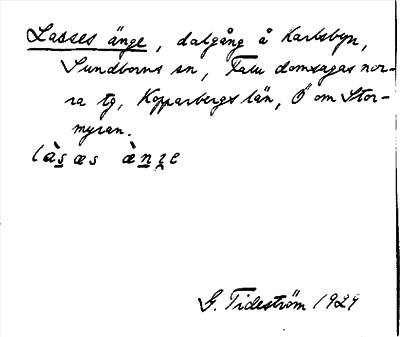 Lasses änge, dalgång å Karlsbyn,
Sundborns sn, Falu domsagas nor-
ra tg, Kopparbergs län, Ö om Stor-
myran.
làsæs ànze
G. Tideström 1929